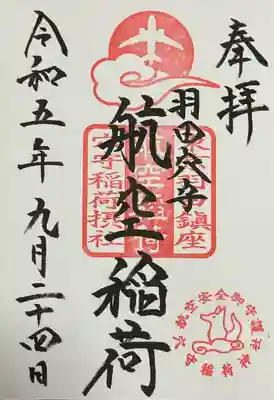 奉拝
羽田穴守
航空稲荷
令和五年九月二十四日
航空稲荷
穴守稲荷摂社
航空安全御守護
穴守稲荷神社